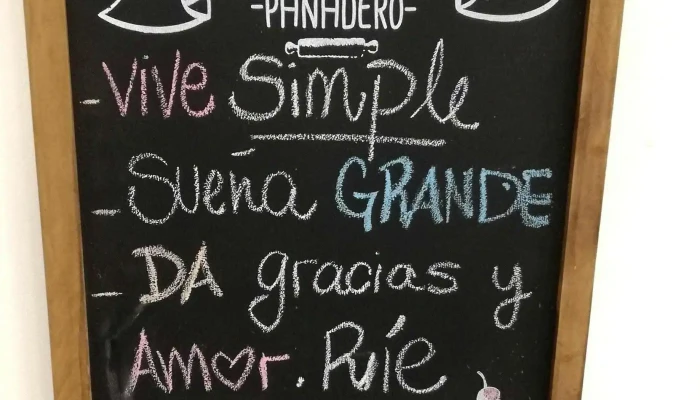 -PANADERO-
- Vive Simple
- Sueña GRANDE
- DA gracias y
Amor. Ríe